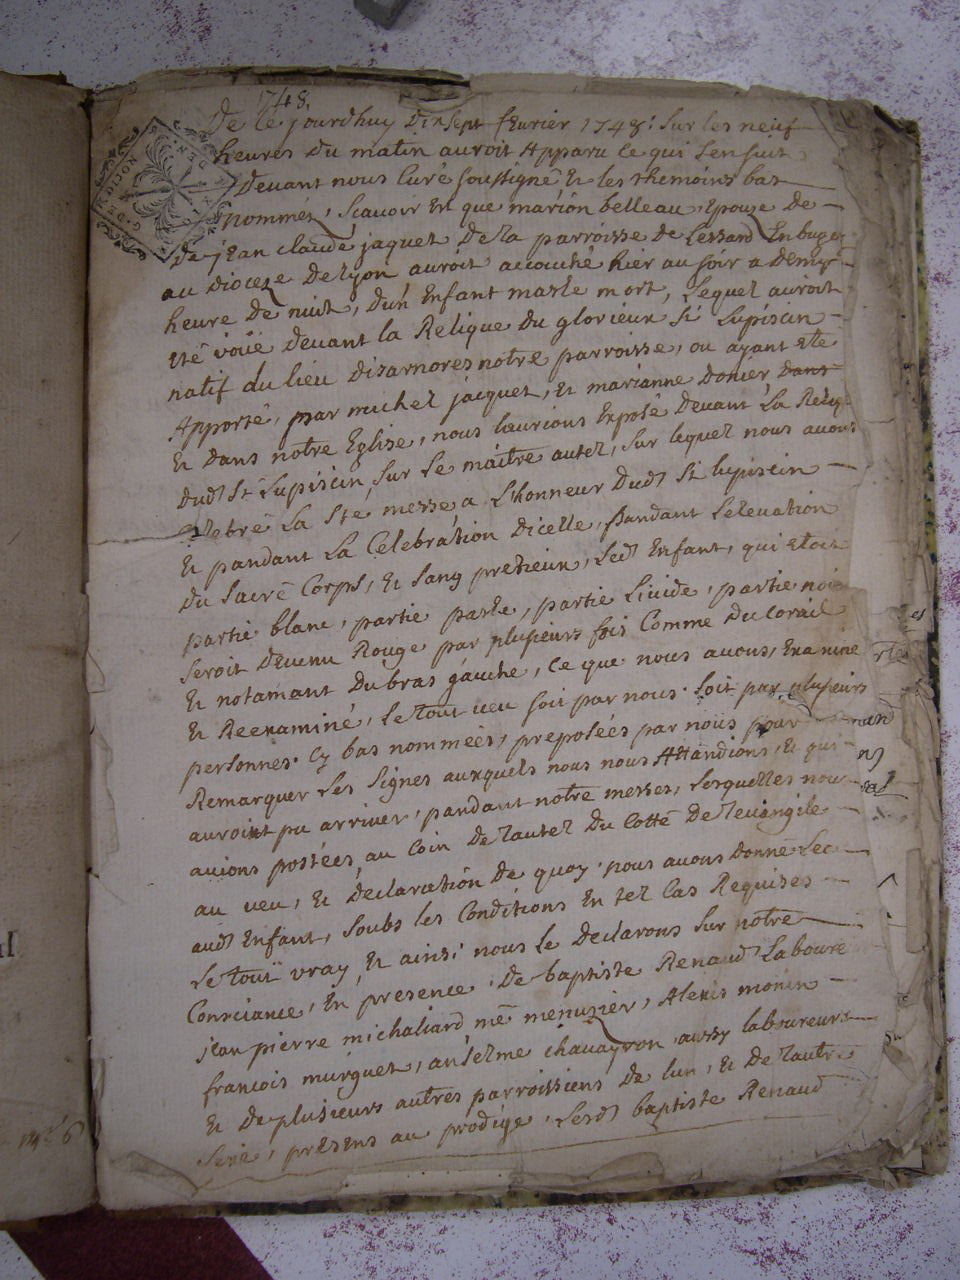 1748.
De ce jourdhuy dixsept fevrier 1748: sur les neuf
heures du matin auroit apparu ce qui sensuit
devant nous curé soussigné et les themoins bas
nommez, scavoir en que marion belleau epouze de
de jean claude jaquet de la parroisse de Lessard en bugey
au dioceze de lyon auroit accouché hier au soir a demy
heure de nuit, d'un enfant masle mort, lequel auroit
eté voüé devant la Relique du glorieux St Lupiscin
natif du lieu disarnores notre parroisse, ou ayant eté
Apporté, par michel jacquet, et marianne donier dans
Et dans notre Eglise, nous laurions Exposé devant La Reliq
dud St Lupiscin, sur Le maitre autel, sur lequel nous avons
celebré La Ste messe a L'honneur dud St lupiscin
Et pandant La Celebration dicelle, pandant Lelevation
du Sacré Corps, Et Sang pretieux, Led Enfant, qui etoit
partie blanc, partie pasle, partie Livide, partie noir
seroit devenu Rouge par plusieurs fois Comme du Corail
Et notamant du bras gauche, ce que nous avons, Examiné
Et Reexaminé, Le tout veu soit par nous. soit par plusieurs
personnes. Cy bas nommées, preposées par nous pour
Remarquer Les signes auxquels nous nous Attandions, Et qui
auroint pu arriver, pandant notre messe, Lesquelles nous
avions postées, au Coin de l'autel du Cotté de levangile
au veu, Et declaration de quoy. nous avons donné Lec
aud Enfant, soubs les Conditions En tel Cas Requises
Le tout vray, Et ainsi nous Le declarons sur notre
Conciance, En presence. de baptiste Renaud Laboure
jean pierre michaliard me menuzier, Alexis monin
francois murguet, anselme chavayron aussy laboureurs
Et de plusieurs autres parroissiens de lun, Et de lautre
sexe, presens au prodige. Lesd baptiste Renaud
DIJON